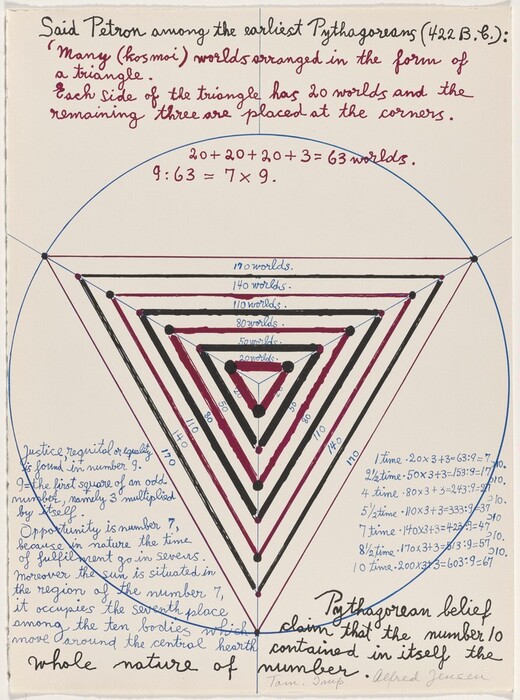 Said Petron among the earliest Pythagoreans (422 B.C.):
"Many (kosmoi) worlds arranged in the form of
a triangle.
Each side of the triangle has 20 worlds and the
remaining three are placed at the corners.
20+20+20+3 = 63 worlds.
9:63 = 7 x 9.
170 worlds.
140 worlds.
110 worlds.
80 worlds.
50 worlds.
20 worlds.
20 20
50 50
80 80
110 110
140 140
170 170
Justice, requital or equality
is found in number 9.
9 = the first square of an odd
number, namely 3 multiplied
by itself.
Opportunity is number 7,
because in nature the time
of fulfilment go in sevens.
Moreover the sun is situated in
the region of the number 7,
it occupies the seventh place
among the ten bodies which
move around the central hearth
1 time · 20x3+3=63:9=7
9½ time · 50x3+3=153:9=17
4 time · 80x3+3=243:9=27
5½ time · 110x3+3=333:9=37
7 time · 140x3+3=423:9=47
8½ time · 170x3+3=513:9=57
10 time · 200x3+3=603:9=67
>10.
>10.
>10.
>10.
>10.
>10.
Pythagorean belief
claim that the number 10
contained in itself the
whole nature of number.
Tam. Imp Alfred Jensen